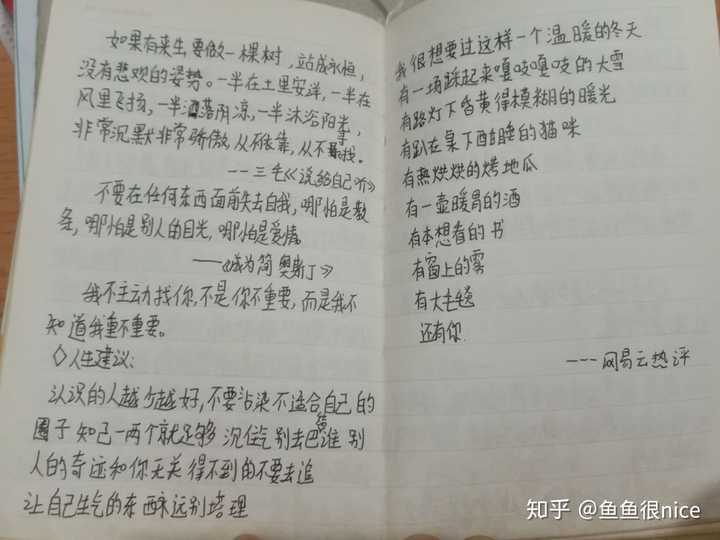 如果有来生要做一棵树，站成永恒，
没有悲观的姿势。一半在土里安详，一半在
风里飞扬，一半洒落阴凉，一半沐浴阳光，
非常沉默非常骄傲，从不依靠，从不寻找。
--三毛《说给自己听》
不要在任何东西面前失去自我，哪怕是教
条，哪怕是别人的目光，哪怕是爱情。
——《成为简奥斯丁》
我不主动找你，不是你不重要，而是我不
知道我重不重要。
◇人生建议：
认识的人越少越好，不要沾染不适合自己的
圈子 知己一两个就足够 沉住气 别去巴结谁 别
人的奇迹和你无关 得不到的不要去追
让自己生气的东西永远别搭理
我很想要过这样一个温暖的冬天
有一场踩起来嘎吱嘎吱的大雪
有路灯下昏黄得模糊的暖光
有趴在桌下酣睡的猫咪
有热烘烘的烤地瓜
有一壶暖胃的酒
有本想看的书
有窗上的雾
有大毛毯
还有你
---网易云热评
知乎 @鱼鱼很nice